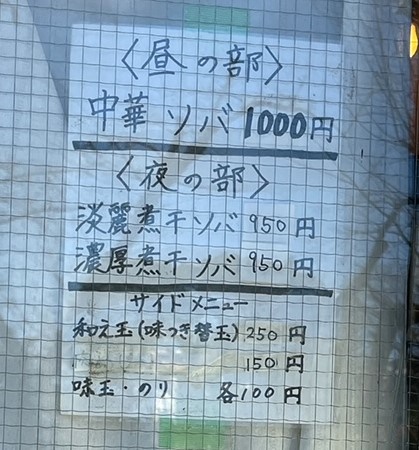 〈昼の部〉
中華ソバ 1000円
〈夜の部〉
淡麗煮干ソバ 950円
濃厚煮干ソバ 950円
サイドメニュー
和え玉(味つき替玉) 250円
150円
味玉・のり 各100円